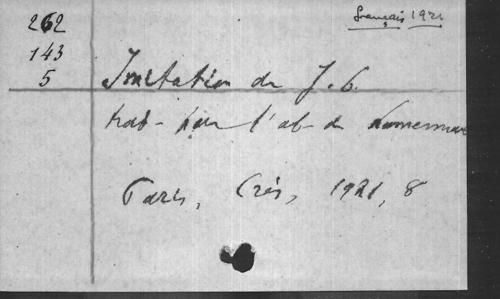 262
143
5
français 1921
Imitation de J. C.
trad. par l'ab. de Lamennais
Paris, Crès, 1921, 8